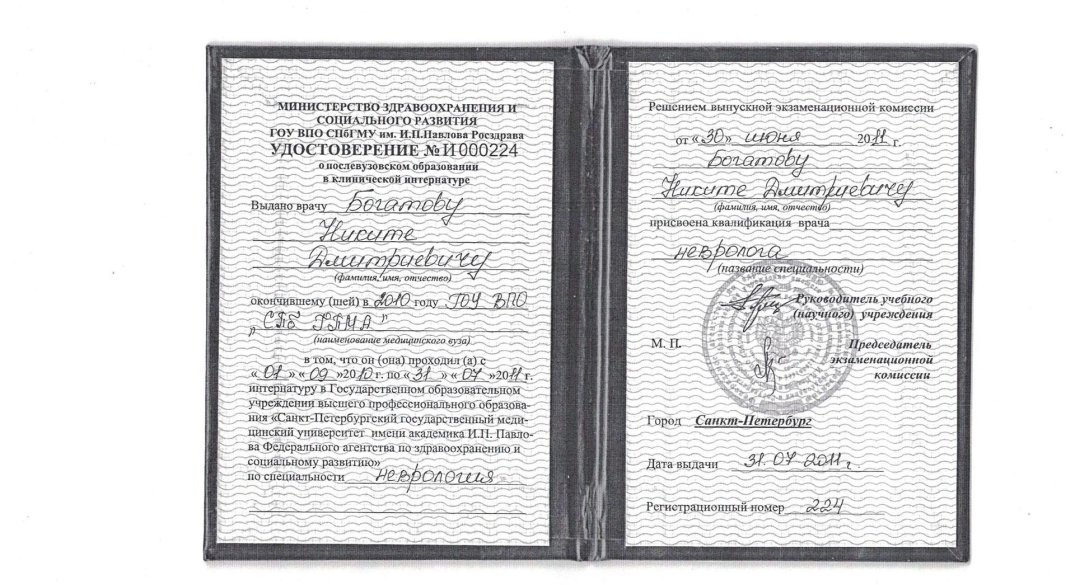 МИНИСТЕРСТВО ЗДРАВООХРАНЕНИЯ И
СОЦИАЛЬНОГО РАЗВИТИЯ
ГОУ ВПО СПбГМУ им. И.П.Павлова Росздрава
УДОСТОВЕРЕНИЕ № И 000224
о послевузовском образовании
в клинической интернатуре
Выдано врачу Богатову
Никите
Дмитриевичу
(фамилия, имя, отчество)
окончившему (шей) в 2010 году ГОУ ВПО
„СПб ГПМА"
(наименование медицинского вуза)
в том, что он (она) проходил (а) с
« 01 » « 09 »2010 г. по « 31 » « 07 »2011 г.
интернатуру в Государственном образовательном
учреждении высшего профессионального образова-
ния «Санкт-Петербургский государственный меди-
цинский университет имени академика И.П. Павло-
ва Федерального агентства по здравоохранению и
социальному развитию»
по специальности неврология
Решением выпускной экзаменационной комиссии
от «30» июня 2011 г.
Богатову
Никите Дмитриевичу
(фамилия, имя, отчество)
присвоена квалификация врача
невролога
(название специальности)
Руководитель учебного
(научного) учреждения
М. П. Председатель
экзаменационной
комиссии
Город Санкт-Петербург
Дата выдачи 31.07 2011 г.
Регистрационный номер 224